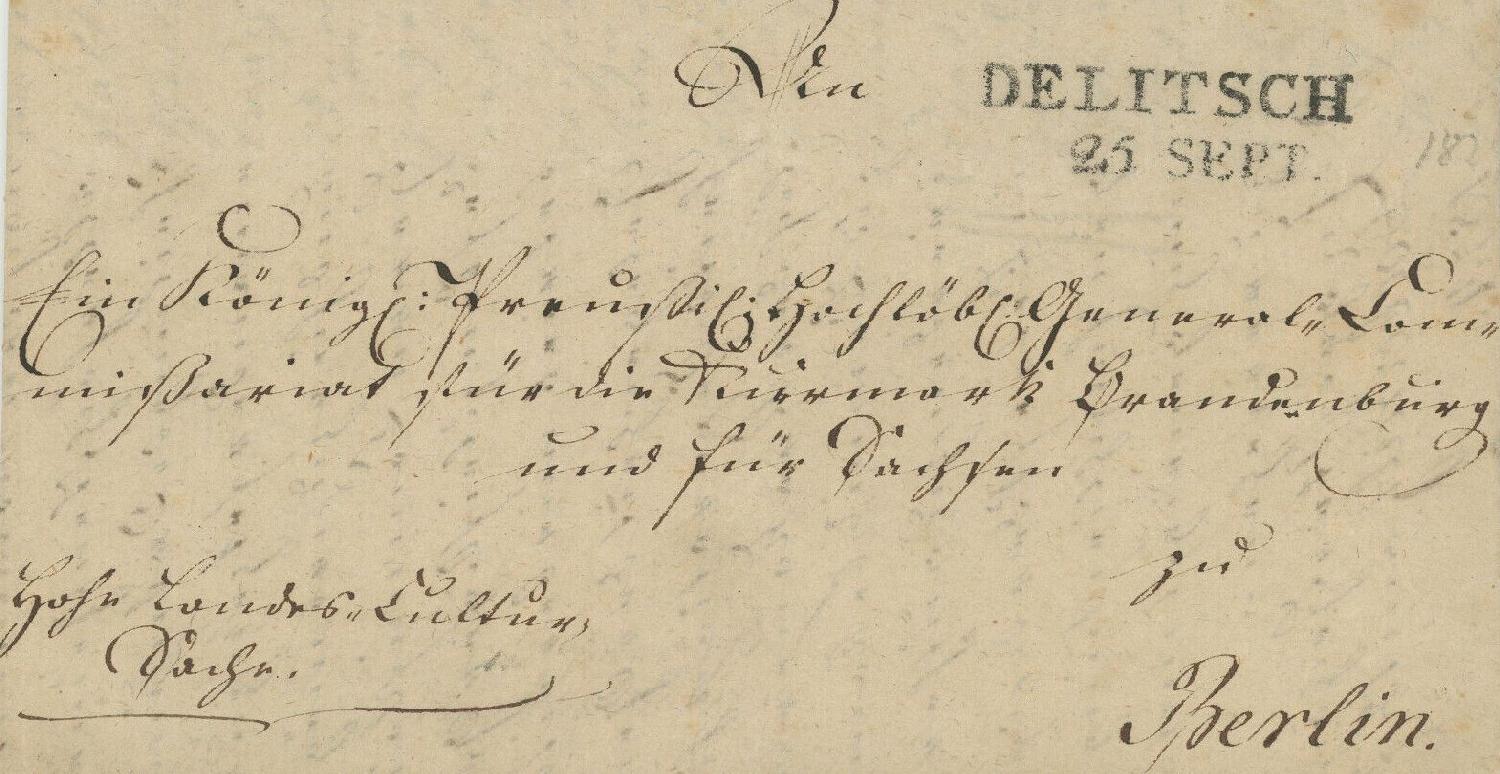 An
DELITSCH
25 SEPT.
Ein Königl: Preußisl: Hochlöbl: General-Com-
mißariat für die Kurmark Brandenburg
und für Sachsen
zu
Hohe Landes-Cultur-
Sache.
Berlin.